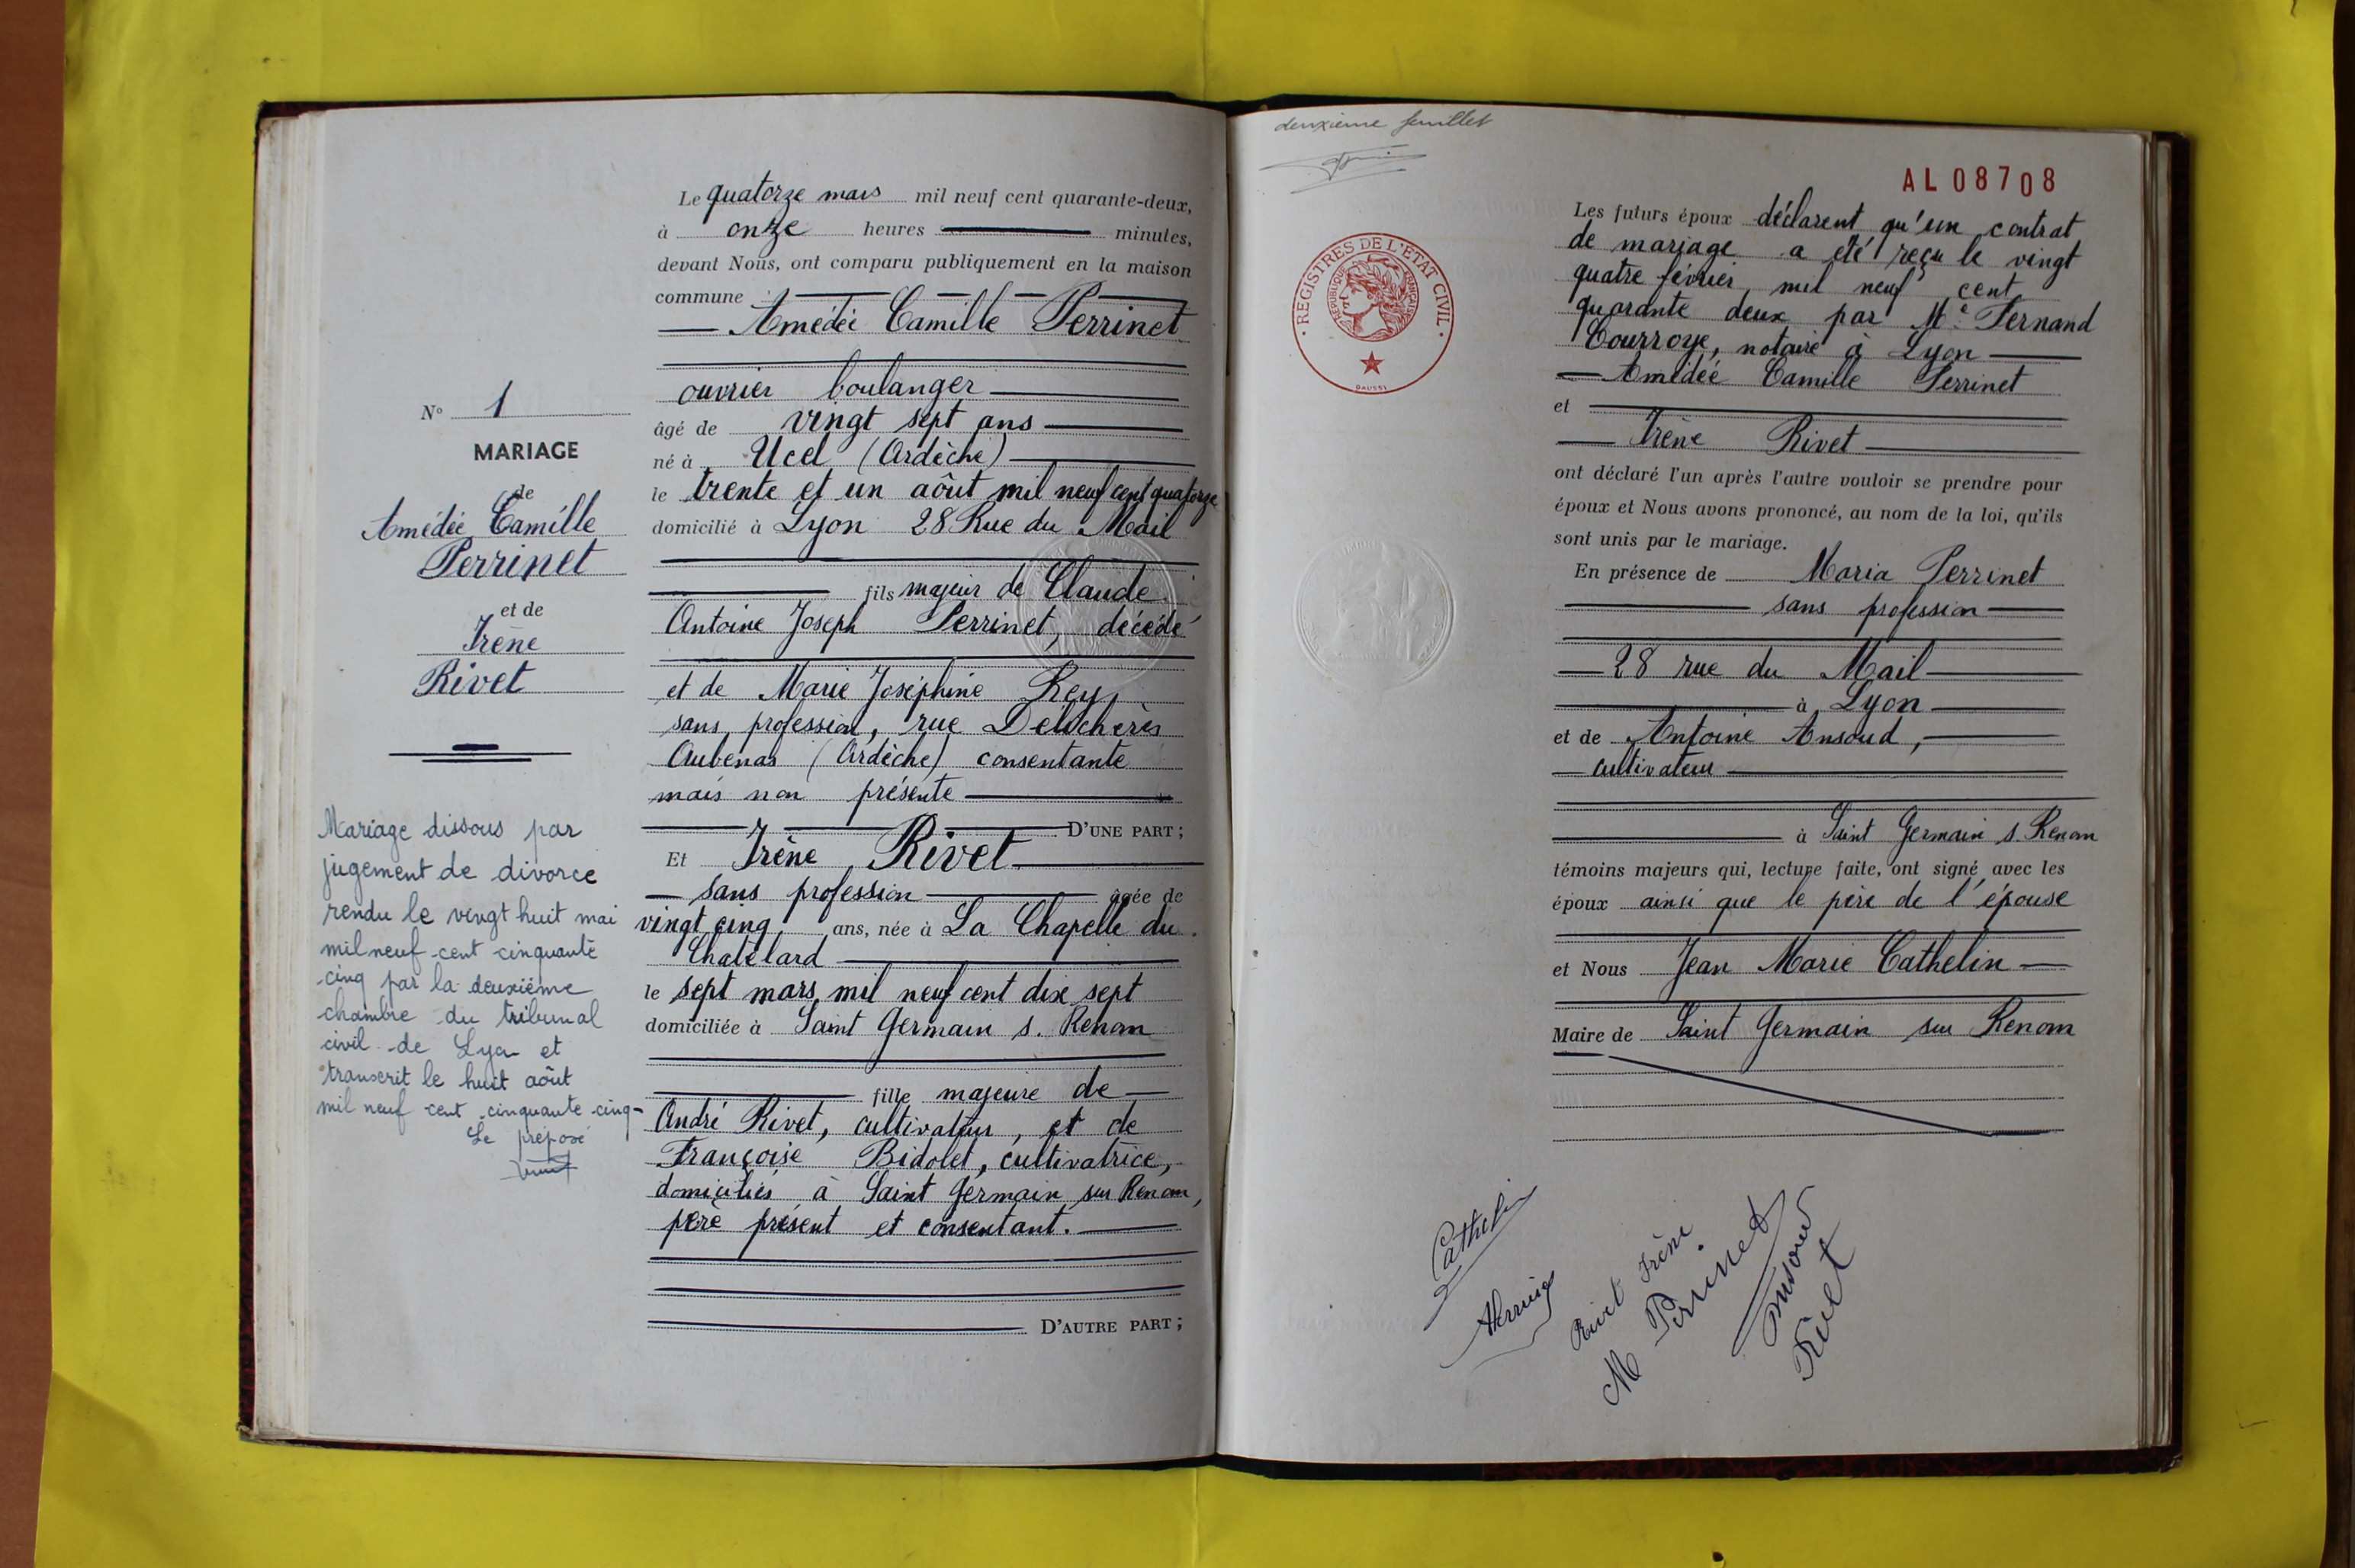 Le quatorze mars mil neuf cent quarante-deux,
à onze heures minutes,
devant Nous, ont comparu publiquement en la maison
commune
Amédée Camille Perrinet
ouvrier boulanger
âgé de vingt sept ans
né à Ucel (Ardèche)
le trente et un aôut mil neuf cent quatorze
domicilié à Lyon 28 Rue du Mail
fils majeur de Claude
Antoine Joseph Perrinet, décédé
et de Marie Joséphine Rey,
sans profession, rue Delichères
Aubenas (Ardèche) consentante
mais non présente
D'UNE PART ;
Et Irène Rivet
sans profession âgée de
vingt cinq ans, née à La Chapelle du
Chatelard
le sept mars mil neuf cent dix sept
domiciliée à Saint Germain s. Renom
fille majeure de
André Rivet, cultivateur, et de
Françoise Bidolet, cultivatrice,
domiciliés à Saint Germain sur Renom,
père présent et consentant.
D'AUTRE PART ;
N° 1
MARIAGE
de
Amédée Camille
Perrinet
et de
Irène
Rivet
Mariage dissous par
jugement de divorce
rendu le vingt huit mai
mil neuf cent cinquante
cinq par la deuxième
chambre du tribunal
civil de Lyon et
transcrit le huit aôut
mil neuf cent cinquante cinq-
Le préposé
deuxième feuillet
AL 08708
REGISTRES DE L'ÉTAT CIVIL
RÉPUBLIQUE FRANÇAISE
DAUSSI
Les futurs époux déclarent qu'un contrat
de mariage a été reçu le vingt
quatre février mil neuf cent
quarante deux par Me Fernand
Courroye, notaire à Lyon
Amédée Camille Perrinet
et
Irène Rivet
ont déclaré l'un après l'autre vouloir se prendre pour
époux et Nous avons prononcé, au nom de la loi, qu'ils
sont unis par le mariage.
En présence de Maria Perrinet
sans profession
28 rue du Mail
à Lyon
et de Antoine Ansoud,
cultivateur
à Saint Germain s. Renom
témoins majeurs qui, lecture faite, ont signé avec les
époux ainsi que le père de l'épouse
et Nous Jean Marie Cathelin
Maire de Saint Germain sur Renom
Cathelin
Rivet Irène
M Perrinet
Ansoud
Rivet